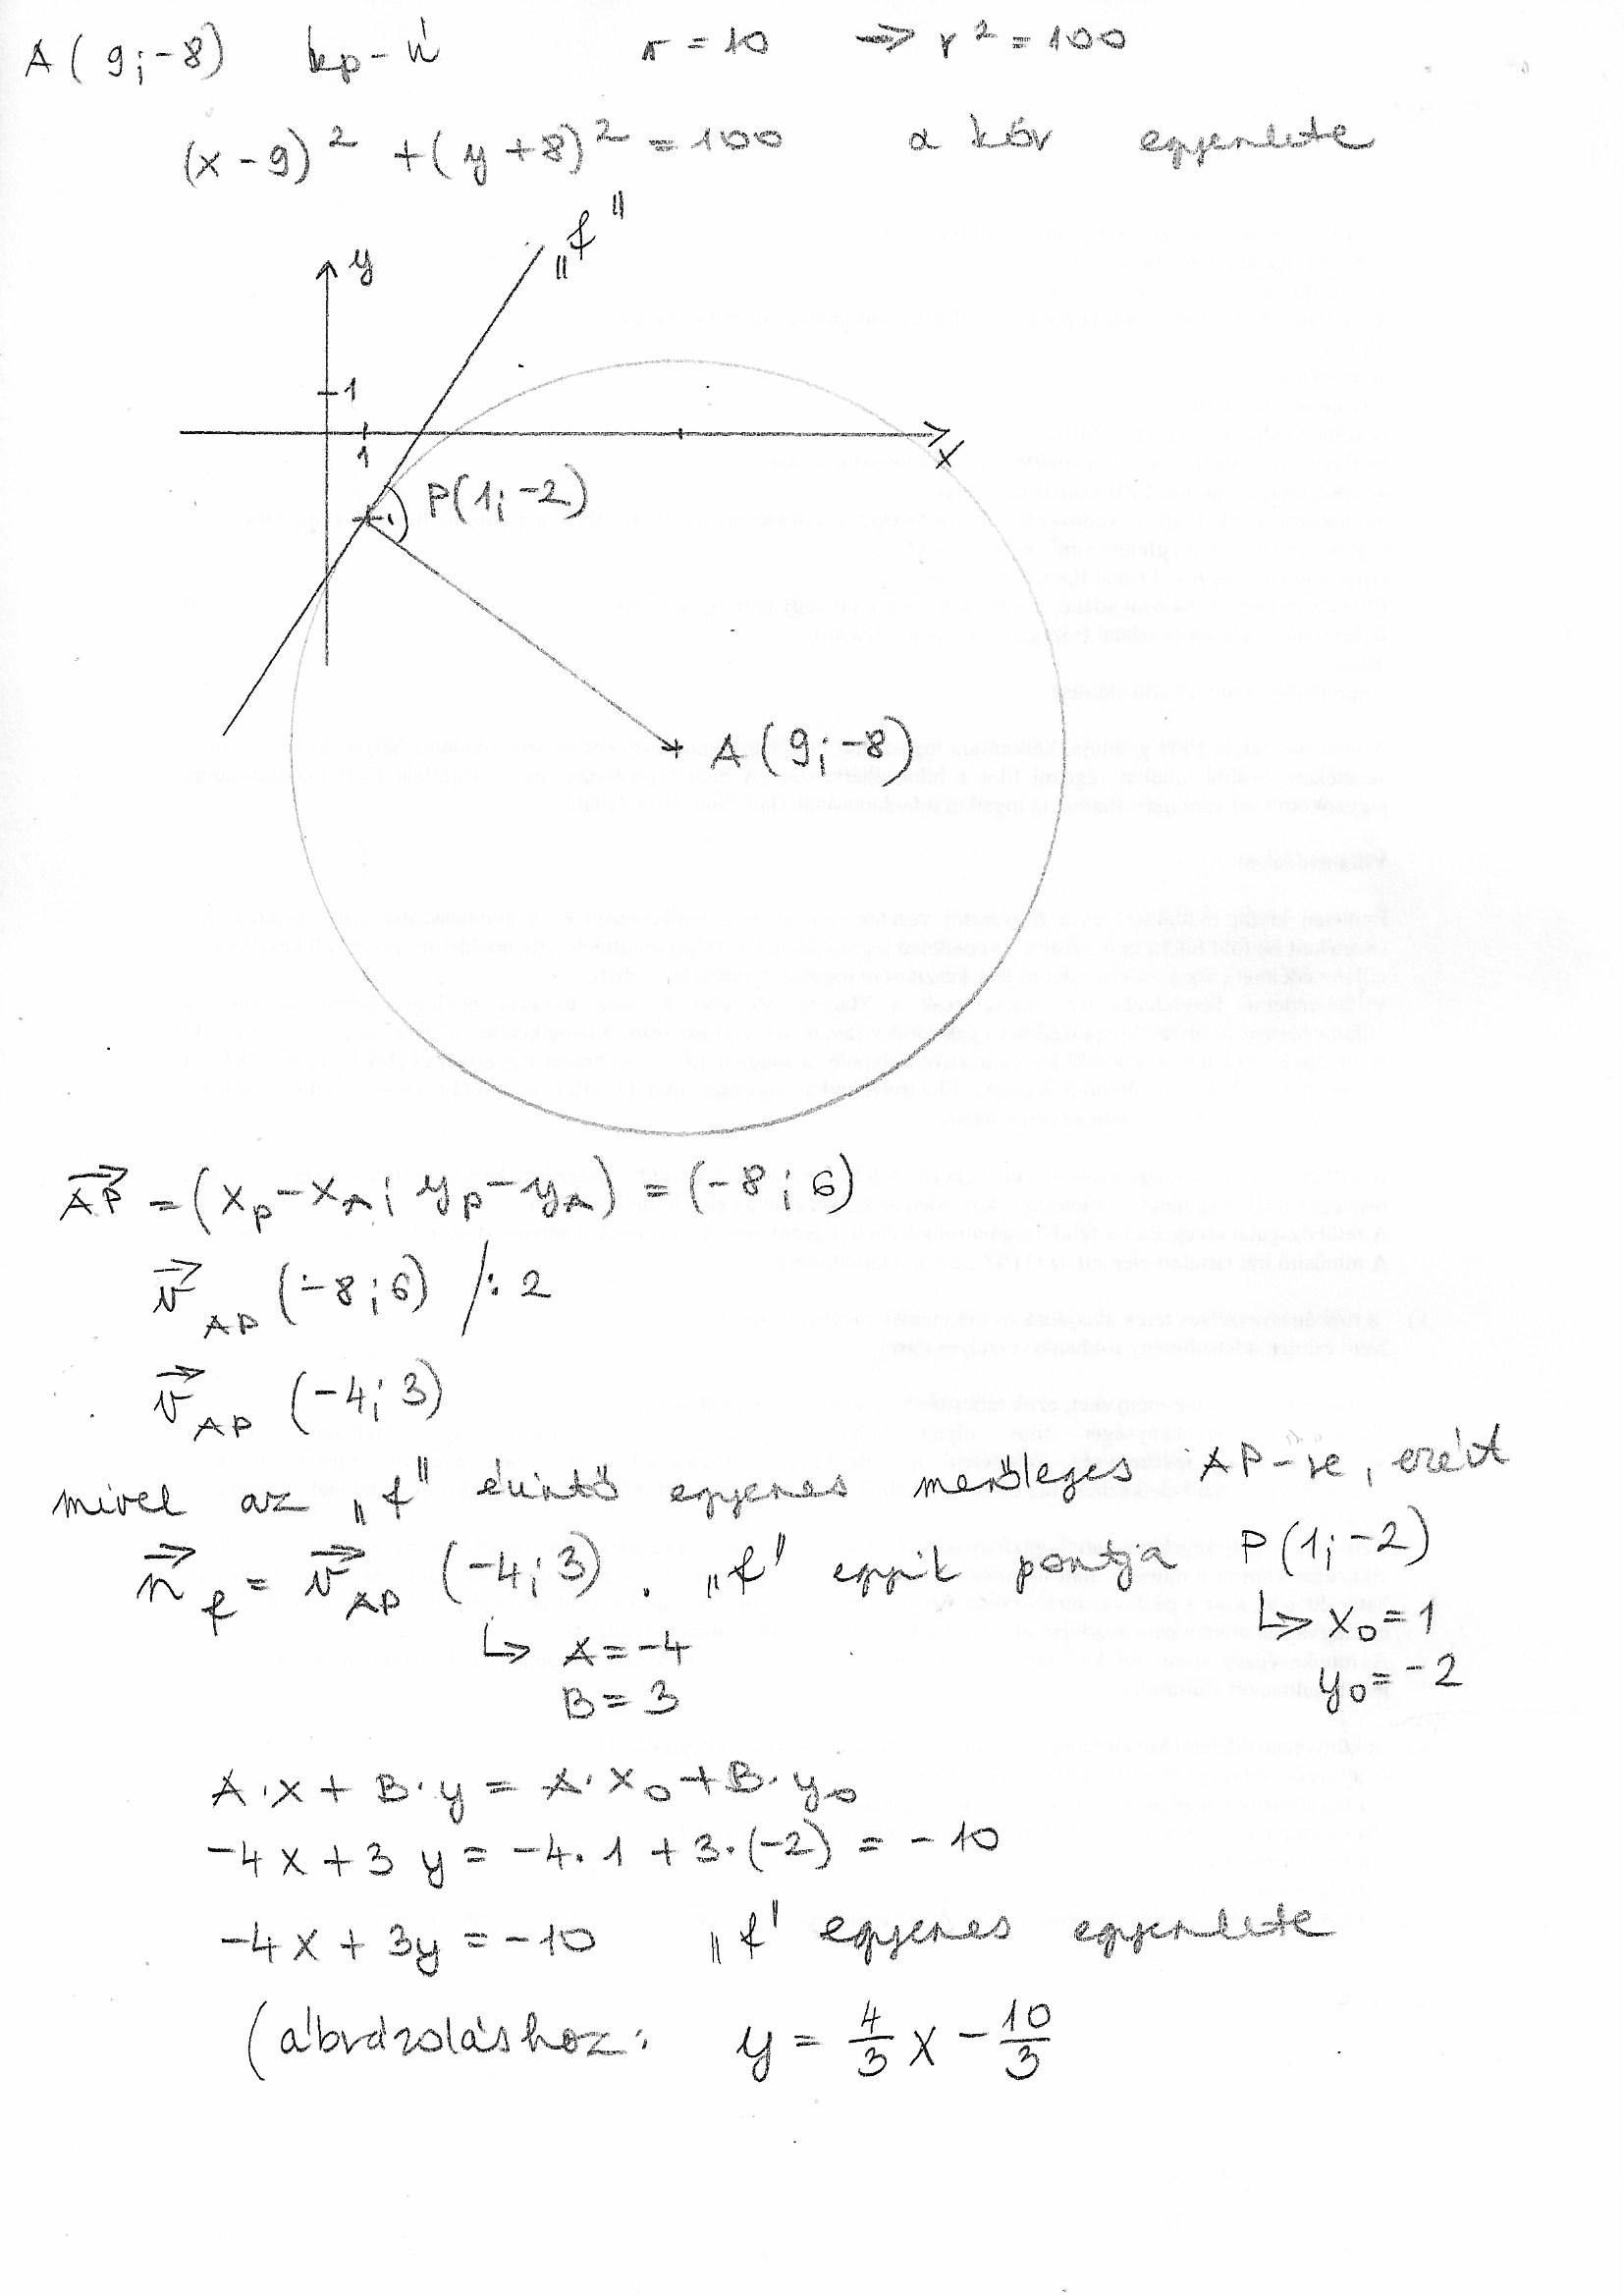 A(9;-8) kp-ú r=10 => r²=100
(x-9)² + (y+8)² = 100 a kör egyenlete
„f"
y
1
x
1
P(1;-2)
A(9;-8)
→AP = (x_P - x_A; y_P - y_A) = (-8;6)
→v_AP (-8;6) /:2
→v_AP (-4;3)
mivel az „f" érintő egyenes merőleges AP-re, ezért
→n_f = →v_AP (-4;3). „f" egyik pontja P(1;-2)
↳ A=-4 ↳ x₀=1
B=3 y₀=-2
A·x + B·y = A·x₀ + B·y₀
-4x + 3y = -4·1 + 3·(-2) = -10
-4x + 3y = -10 „f" egyenes egyenlete
(ábrázoláshoz: y = 4/3 x - 10/3